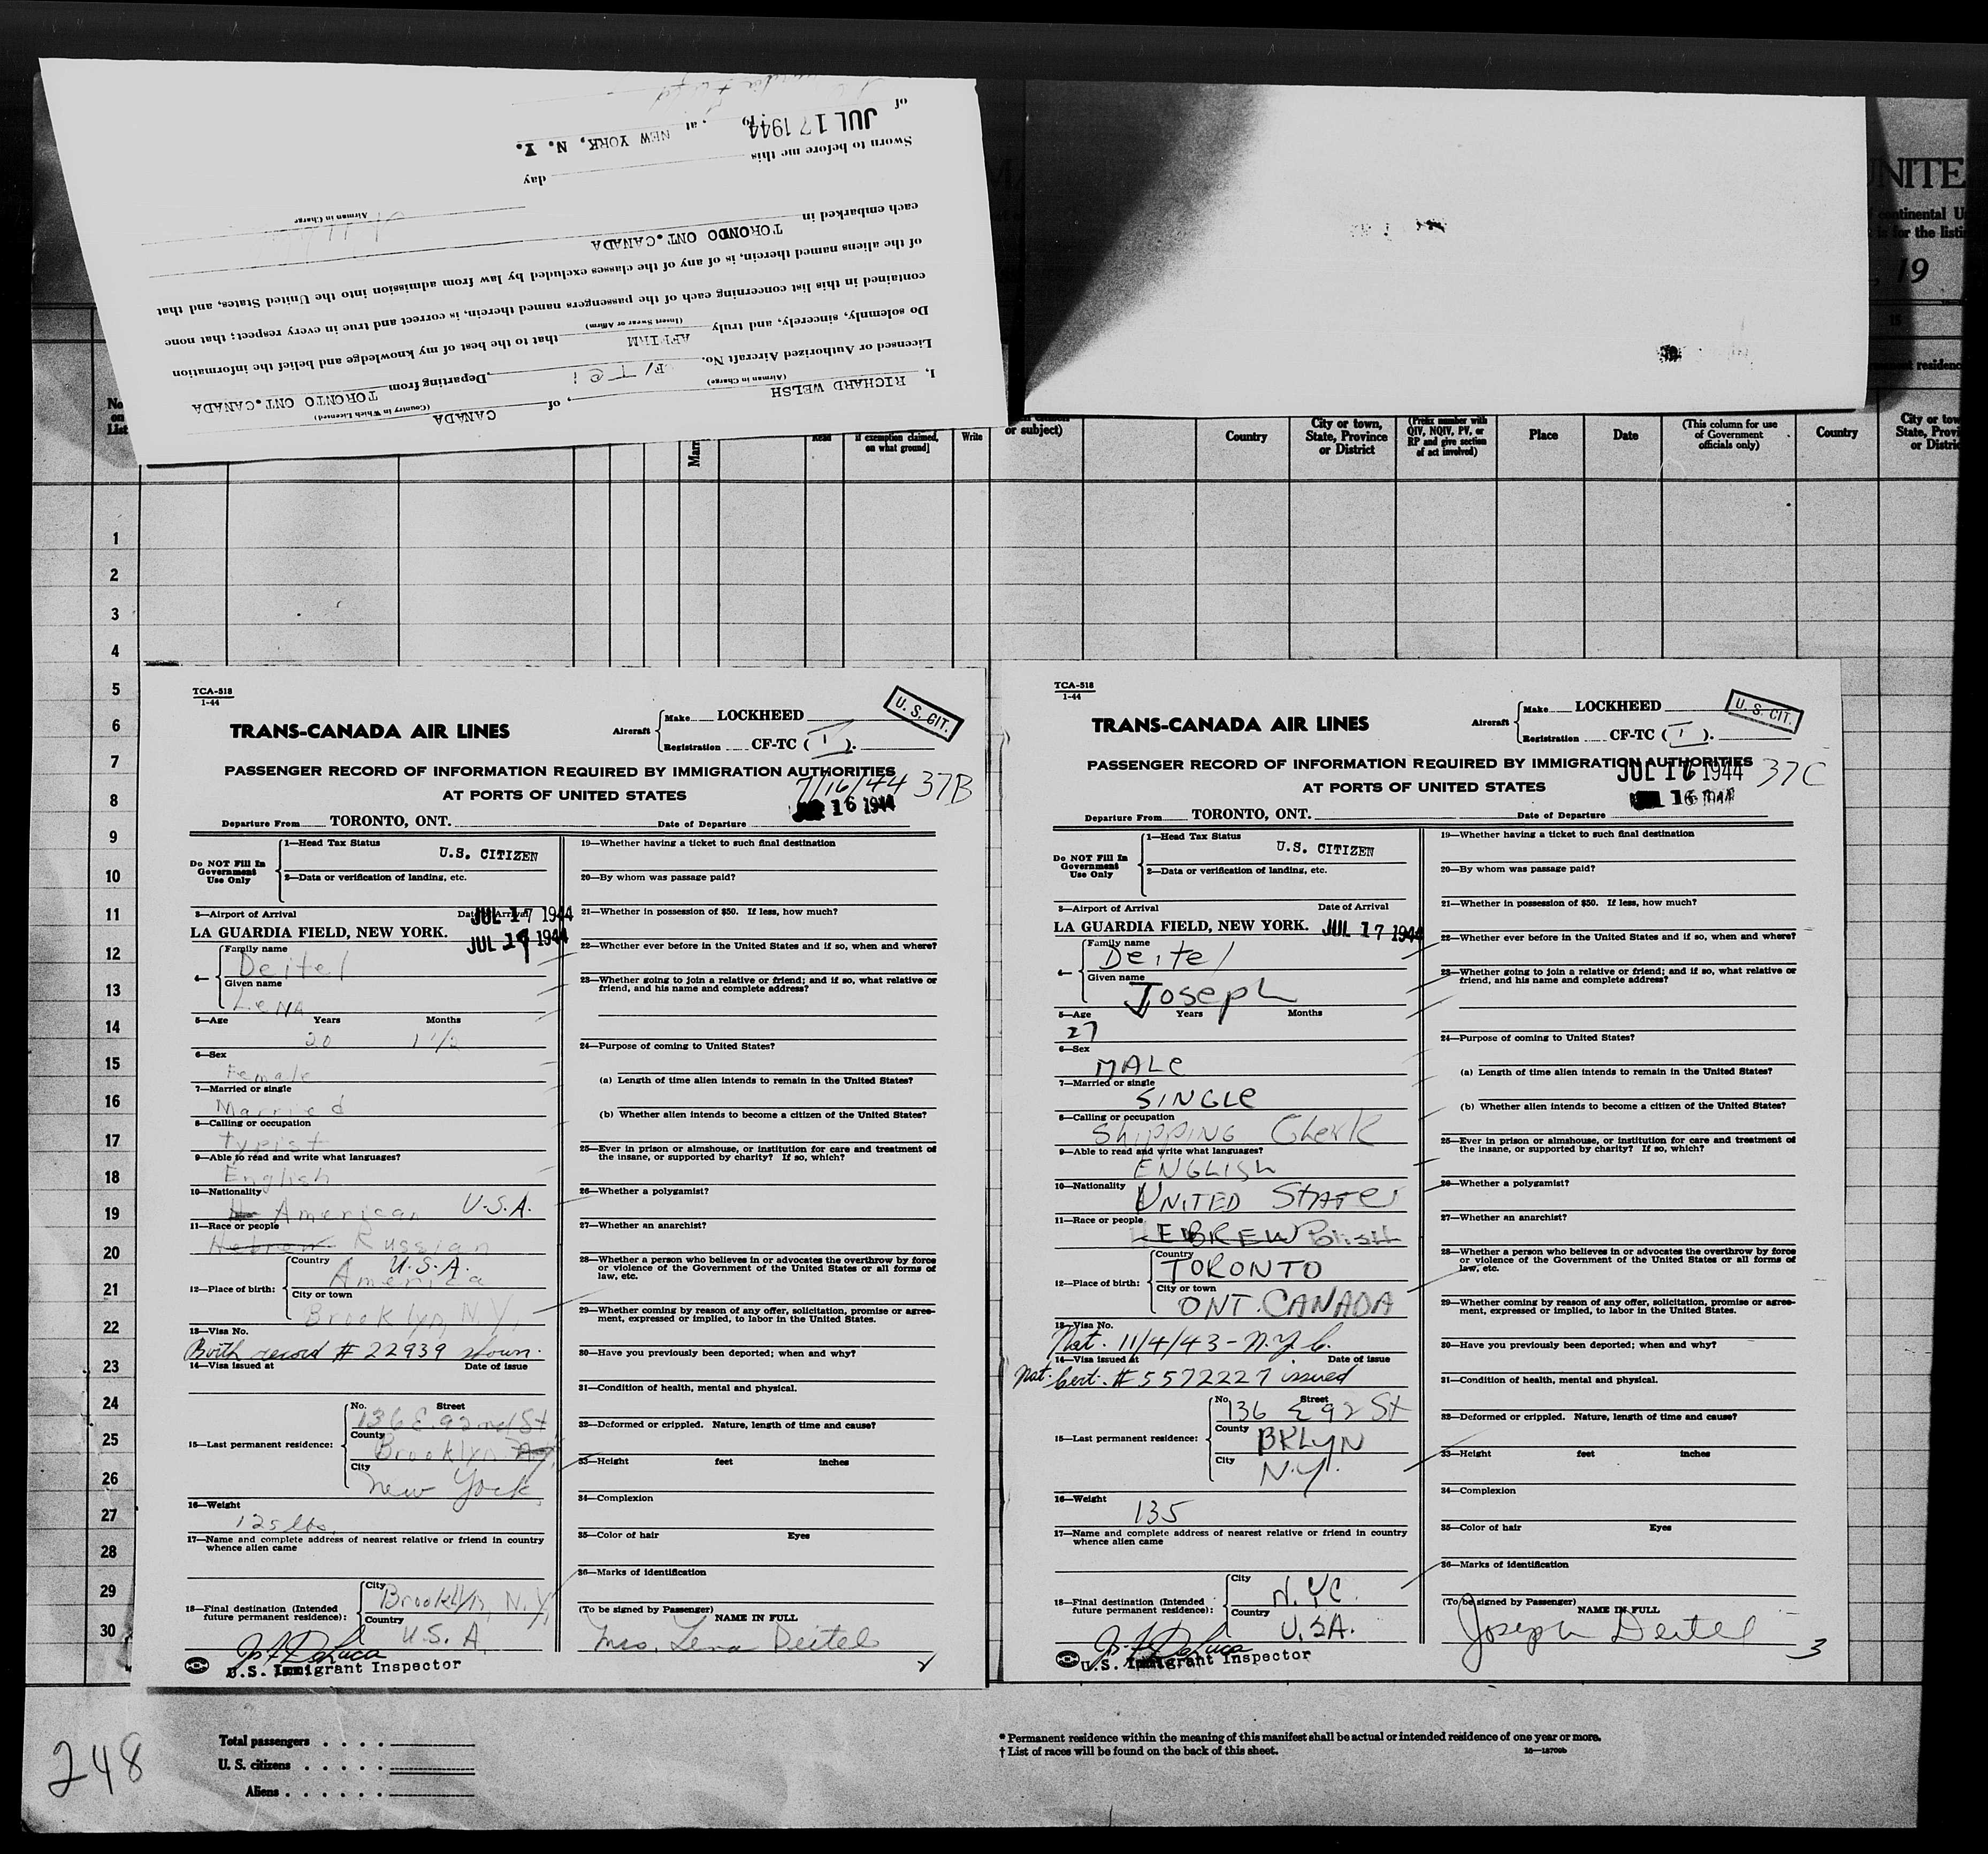 I, RICHARD WELSH, of CANADA
(Airman in Charge) (Country in Which Licensed)
Licensed or Authorized Aircraft No. Departing from TORONTO ONT.CANADA
Do solemnly, sincerely, and truly AFFIRM that to the best of my knowledge and belief the information
(Insert Swear or Affirm)
contained in this list concerning each of the passengers named therein, is correct and true in every respect; that none
of the aliens named therein, is of any of the classes excluded by law from admission into the United States, and that
each embarked in TORONDO ONT.CANADA
Airman in Charge
Sworn to before me this day
of JUL 17 1944 19 , at NEW YORK, N. Y.
UNITE
continental U
is for the listin
, 19
15
permanent residenc
No.
on
List
Marr
Read
if exemption claimed,
on what ground]
Write
or subject)
Country
City or town,
State, Province
or District
(Prefix number with
QIV, NQIV, PV, or
RP and give section
of act involved)
Place
Date
(This column for use
of Government
officials only)
Country
City or tow
State, Provi
or Distric
1
2
3
4
5
6
7
8
9
10
11
12
13
14
15
16
17
18
19
20
21
22
23
24
25
26
27
28
29
30
TCA-518
1-44
TRANS-CANADA AIR LINES
Aircraft
Make LOCKHEED
Registration CF-TC ( I ).
U. S. CIT.
PASSENGER RECORD OF INFORMATION REQUIRED BY IMMIGRATION AUTHORITIES
AT PORTS OF UNITED STATES
7/16/44 37B
16 1944
Departure From TORONTO, ONT. Date of Departure
Do NOT Fill In
Government
Use Only
1—Head Tax Status
U.S. CITIZEN
2—Data or verification of landing, etc.
3—Airport of Arrival Date of Arrival
JUL 17 1944
LA GUARDIA FIELD, NEW YORK.
JUL 17 1944
4—
Family name
Deitel
Given name
LeNA
5—Age Years Months
20 1 1/2
6—Sex
Female
7—Married or single
Married
8—Calling or occupation
Typist
9—Able to read and write what languages?
English
10—Nationality
American U.S.A.
11—Race or people
Hebrew Russian
12—Place of birth:
Country
U.S.A.
America
City or town
Brooklyn, N.Y.
13—Visa No.
Birth record # 22939 shown.
14—Visa issued at Date of issue
15—Last permanent residence:
No. Street
136 E. 92nd St
County
Brooklyn N.Y.
City
New York
16—Weight
125 lbs.
17—Name and complete address of nearest relative or friend in country
whence alien came
18—Final destination (Intended
future permanent residence):
City
Brooklyn, N.Y.
Country
U.S.A.
U.S. Immigrant Inspector
19—Whether having a ticket to such final destination
20—By whom was passage paid?
21—Whether in possession of $50. If less, how much?
22—Whether ever before in the United States and if so, when and where?
23—Whether going to join a relative or friend; and if so, what relative or
friend, and his name and complete address?
24—Purpose of coming to United States?
(a) Length of time alien intends to remain in the United States?
(b) Whether alien intends to become a citizen of the United States?
25—Ever in prison or almshouse, or institution for care and treatment of
the insane, or supported by charity? If so, which?
26—Whether a polygamist?
27—Whether an anarchist?
28—Whether a person who believes in or advocates the overthrow by force
or violence of the Government of the United States or all forms of
law, etc.
29—Whether coming by reason of any offer, solicitation, promise or agree-
ment, expressed or implied, to labor in the United States.
30—Have you previously been deported; when and why?
31—Condition of health, mental and physical.
32—Deformed or crippled. Nature, length of time and cause?
33—Height feet inches
34—Complexion
35—Color of hair Eyes
36—Marks of identification
(To be signed by Passenger)
NAME IN FULL
Mrs. Lena Deitel
2
TCA-518
1-44
TRANS-CANADA AIR LINES
Aircraft
Make LOCKHEED
Registration CF-TC ( I ).
U. S. CIT.
PASSENGER RECORD OF INFORMATION REQUIRED BY IMMIGRATION AUTHORITIES
AT PORTS OF UNITED STATES
JUL 16 1944 37C
Departure From TORONTO, ONT. Date of Departure
Do NOT Fill In
Government
Use Only
1—Head Tax Status
U.S. CITIZEN
2—Data or verification of landing, etc.
3—Airport of Arrival Date of Arrival
LA GUARDIA FIELD, NEW YORK. JUL 17 1944
4—
Family name
Deitel
Given name
Joseph
5—Age Years Months
27
6—Sex
MALe
7—Married or single
SINGLe
8—Calling or occupation
Shipping Clerk
9—Able to read and write what languages?
ENGLISH
10—Nationality
UNITED STATES
11—Race or people
HEBREW Polish
12—Place of birth:
Country
TORONTO
City or town
ONT. CANADA
13—Visa No.
Nat. 11/4/43 - N.Y.C.
14—Visa issued at Date of issue
Nat. Cert. # 5572227 issued
15—Last permanent residence:
No. Street
136 E 92 St
County
BKLyN
City
N.Y.
16—Weight
135
17—Name and complete address of nearest relative or friend in country
whence alien came
18—Final destination (Intended
future permanent residence):
City
N.Y.C.
Country
U.S.A.
U.S. Immigrant Inspector
19—Whether having a ticket to such final destination
20—By whom was passage paid?
21—Whether in possession of $50. If less, how much?
22—Whether ever before in the United States and if so, when and where?
23—Whether going to join a relative or friend; and if so, what relative or
friend, and his name and complete address?
24—Purpose of coming to United States?
(a) Length of time alien intends to remain in the United States?
(b) Whether alien intends to become a citizen of the United States?
25—Ever in prison or almshouse, or institution for care and treatment of
the insane, or supported by charity? If so, which?
26—Whether a polygamist?
27—Whether an anarchist?
28—Whether a person who believes in or advocates the overthrow by force
or violence of the Government of the United States or all forms of
law, etc.
29—Whether coming by reason of any offer, solicitation, promise or agree-
ment, expressed or implied, to labor in the United States.
30—Have you previously been deported; when and why?
31—Condition of health, mental and physical.
32—Deformed or crippled. Nature, length of time and cause?
33—Height feet inches
34—Complexion
35—Color of hair Eyes
36—Marks of identification
(To be signed by Passenger)
NAME IN FULL
Joseph Deitel
3
248
Total passengers . . . .
U. S. citizens . . . . .
Aliens . . . . . .
* Permanent residence within the meaning of this manifest shall be actual or intended residence of one year or more.
† List of races will be found on the back of this sheet.